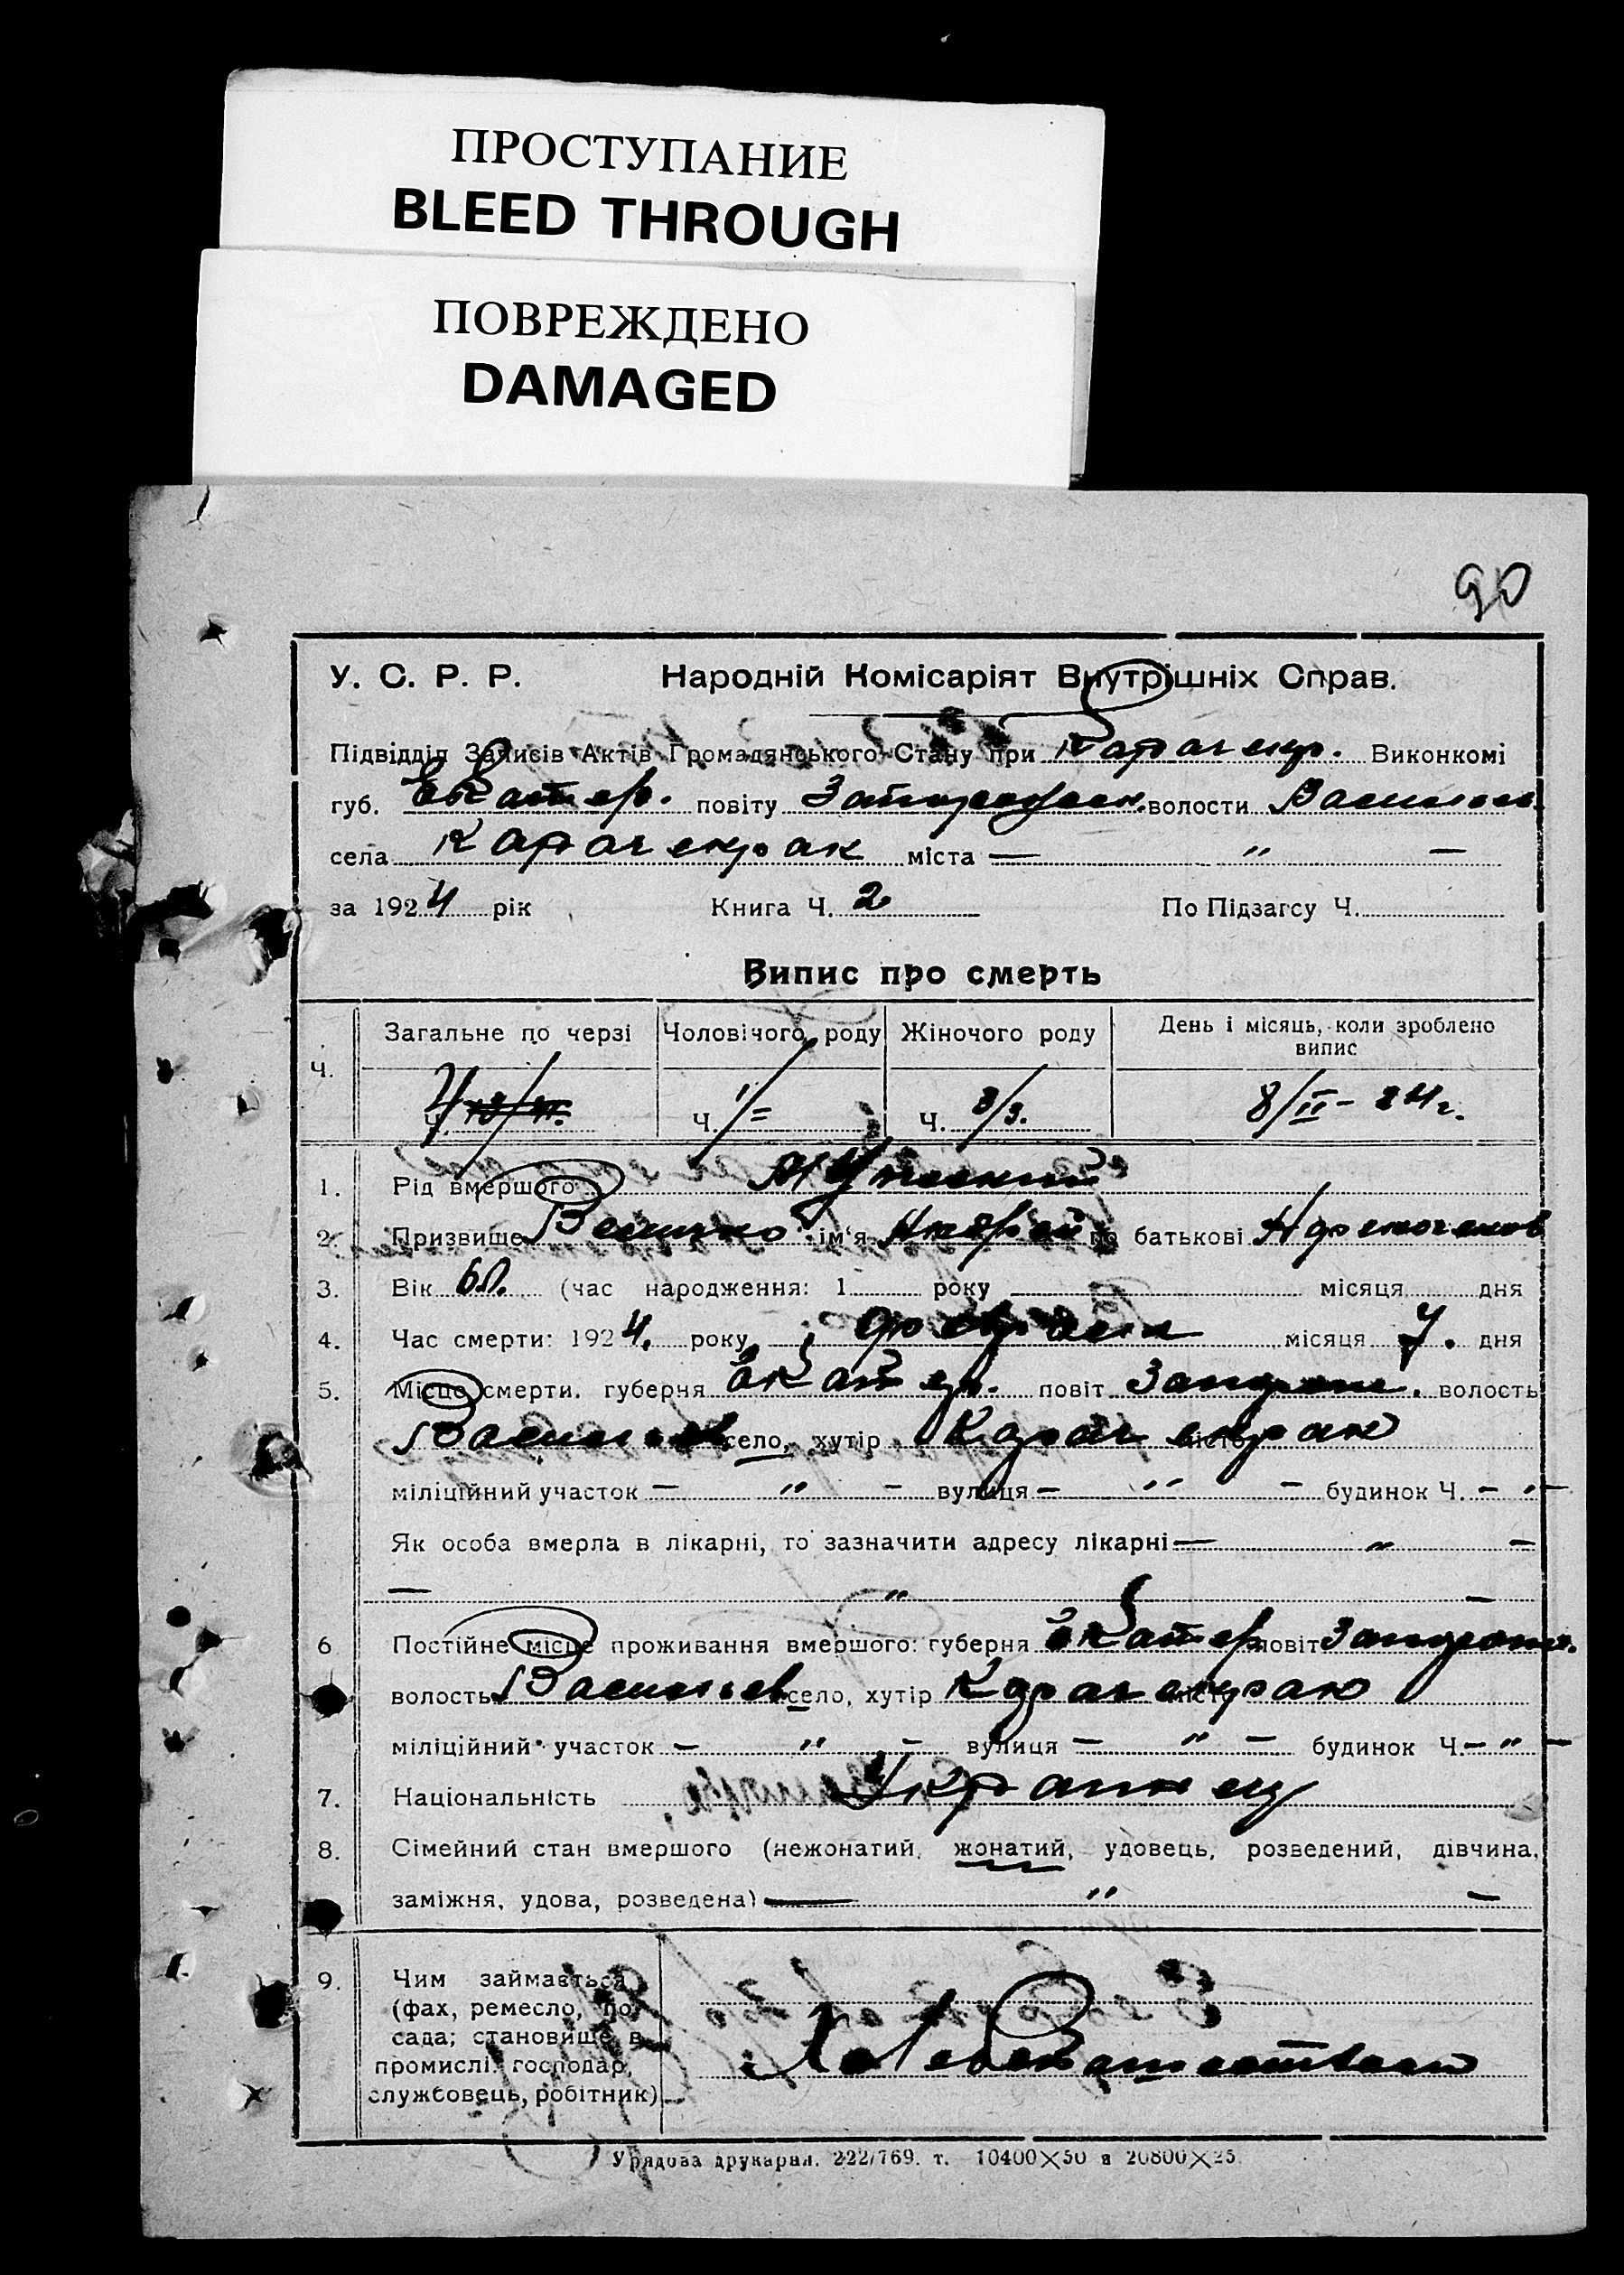 ПРОСТУПАНИЕ
BLEED THROUGH
ПОВРЕЖДЕНО
DAMAGED
90
У. С. Р. Р. Народній Комісаріят Внутрішніх Справ.
Підвідділ Записів Актів Громадянського Стану при Карачекр. Виконкомі
губ. Екатер. повіту волости
села Карачекрак міста — " —
за 1924 рік Книга Ч. 2 По Підзагсу Ч.
Випис про смерть
Ч. Загальне по черзі Чоловічого роду Жіночого роду День і місяць, коли зроблено випис
Ч. Ч. 1/= Ч. 3/3. 8/II - 24 г.
1. Рід вмершого Мужский
2. Призвище Величко ім'я по батькові
3. Вік 60. (час народження: 1 року місяця дня
4. Час смерти: 1924. року февраля місяця 7. дня
5. Місце смерти. губерня Екатер. повіт Запорож. волость
Васильев село, хутір Карачекрак місто
міліційний участок — " — вулиця — " — будинок Ч. — " —
Як особа вмерла в лікарні, то зазначити адресу лікарні — " —
— " —
6. Постійне місце проживання вмершого: губерня Екатер повіт Запорож.
волость Васильев село, хутір Карачекрак місто
міліційний участок — " — вулиця — " — будинок Ч. — " —
7. Національність Украинец
8. Сімейний стан вмершого (нежонатий, жонатий, удовець, розведений, дівчина,
заміжня, удова, розведена) — " —
9. Чим займається
(фах, ремесло, по-
сада; становище в
промислі: господар,
службовець, робітник) Хлебопашеством
Урядова друкарня. 222/769. т. 10400×50 я 20800×25.